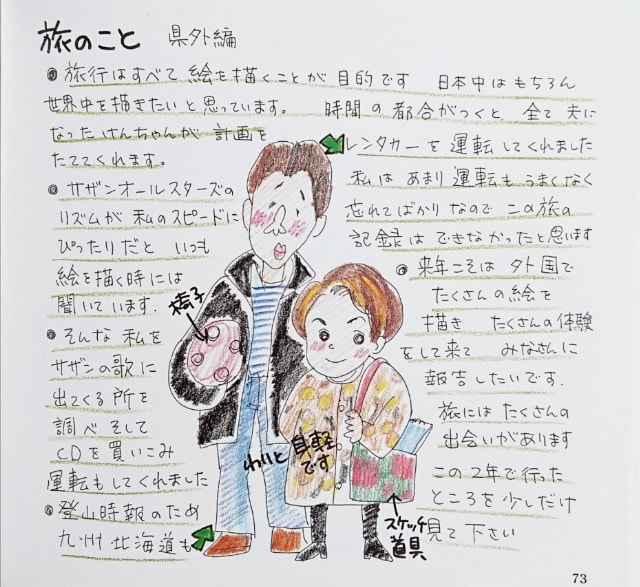 旅のこと 県外編
旅行はすべて絵を描くことが目的です 日本中はもちろん
世界中を描きたいと思っています。 時間の都合がつくと 全て夫に
なったけんちゃんが計画を
たててくれます。
サザンオールスターズの
リズムが私のスピードに
ぴったりだと いつも
絵を描く時には
聞いています.
そんな私を
サザンの歌に
出てくる所を
調べ そして
CDを買いこみ
運転もしてくれました
登山時報のため
九州北海道も
レンタカーを運転してくれました
私はあまり運転もうまくなく
忘れてばかりなのでこの旅の
記録はできなかったと思います
来年こそは外国で
たくさんの絵を
描き たくさんの体験
をして来て みなさんに
報告したいです.
旅にはたくさんの
出会いがあります
この2年で行った
ところを少しだけ
見て下さい
椅子
わりと身軽
です
スケッチ
道具
73